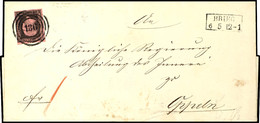 BRIEG
6 5 12-1
An
die Königliche Regierung
Abtheilung des Innern
zu
Oppeln